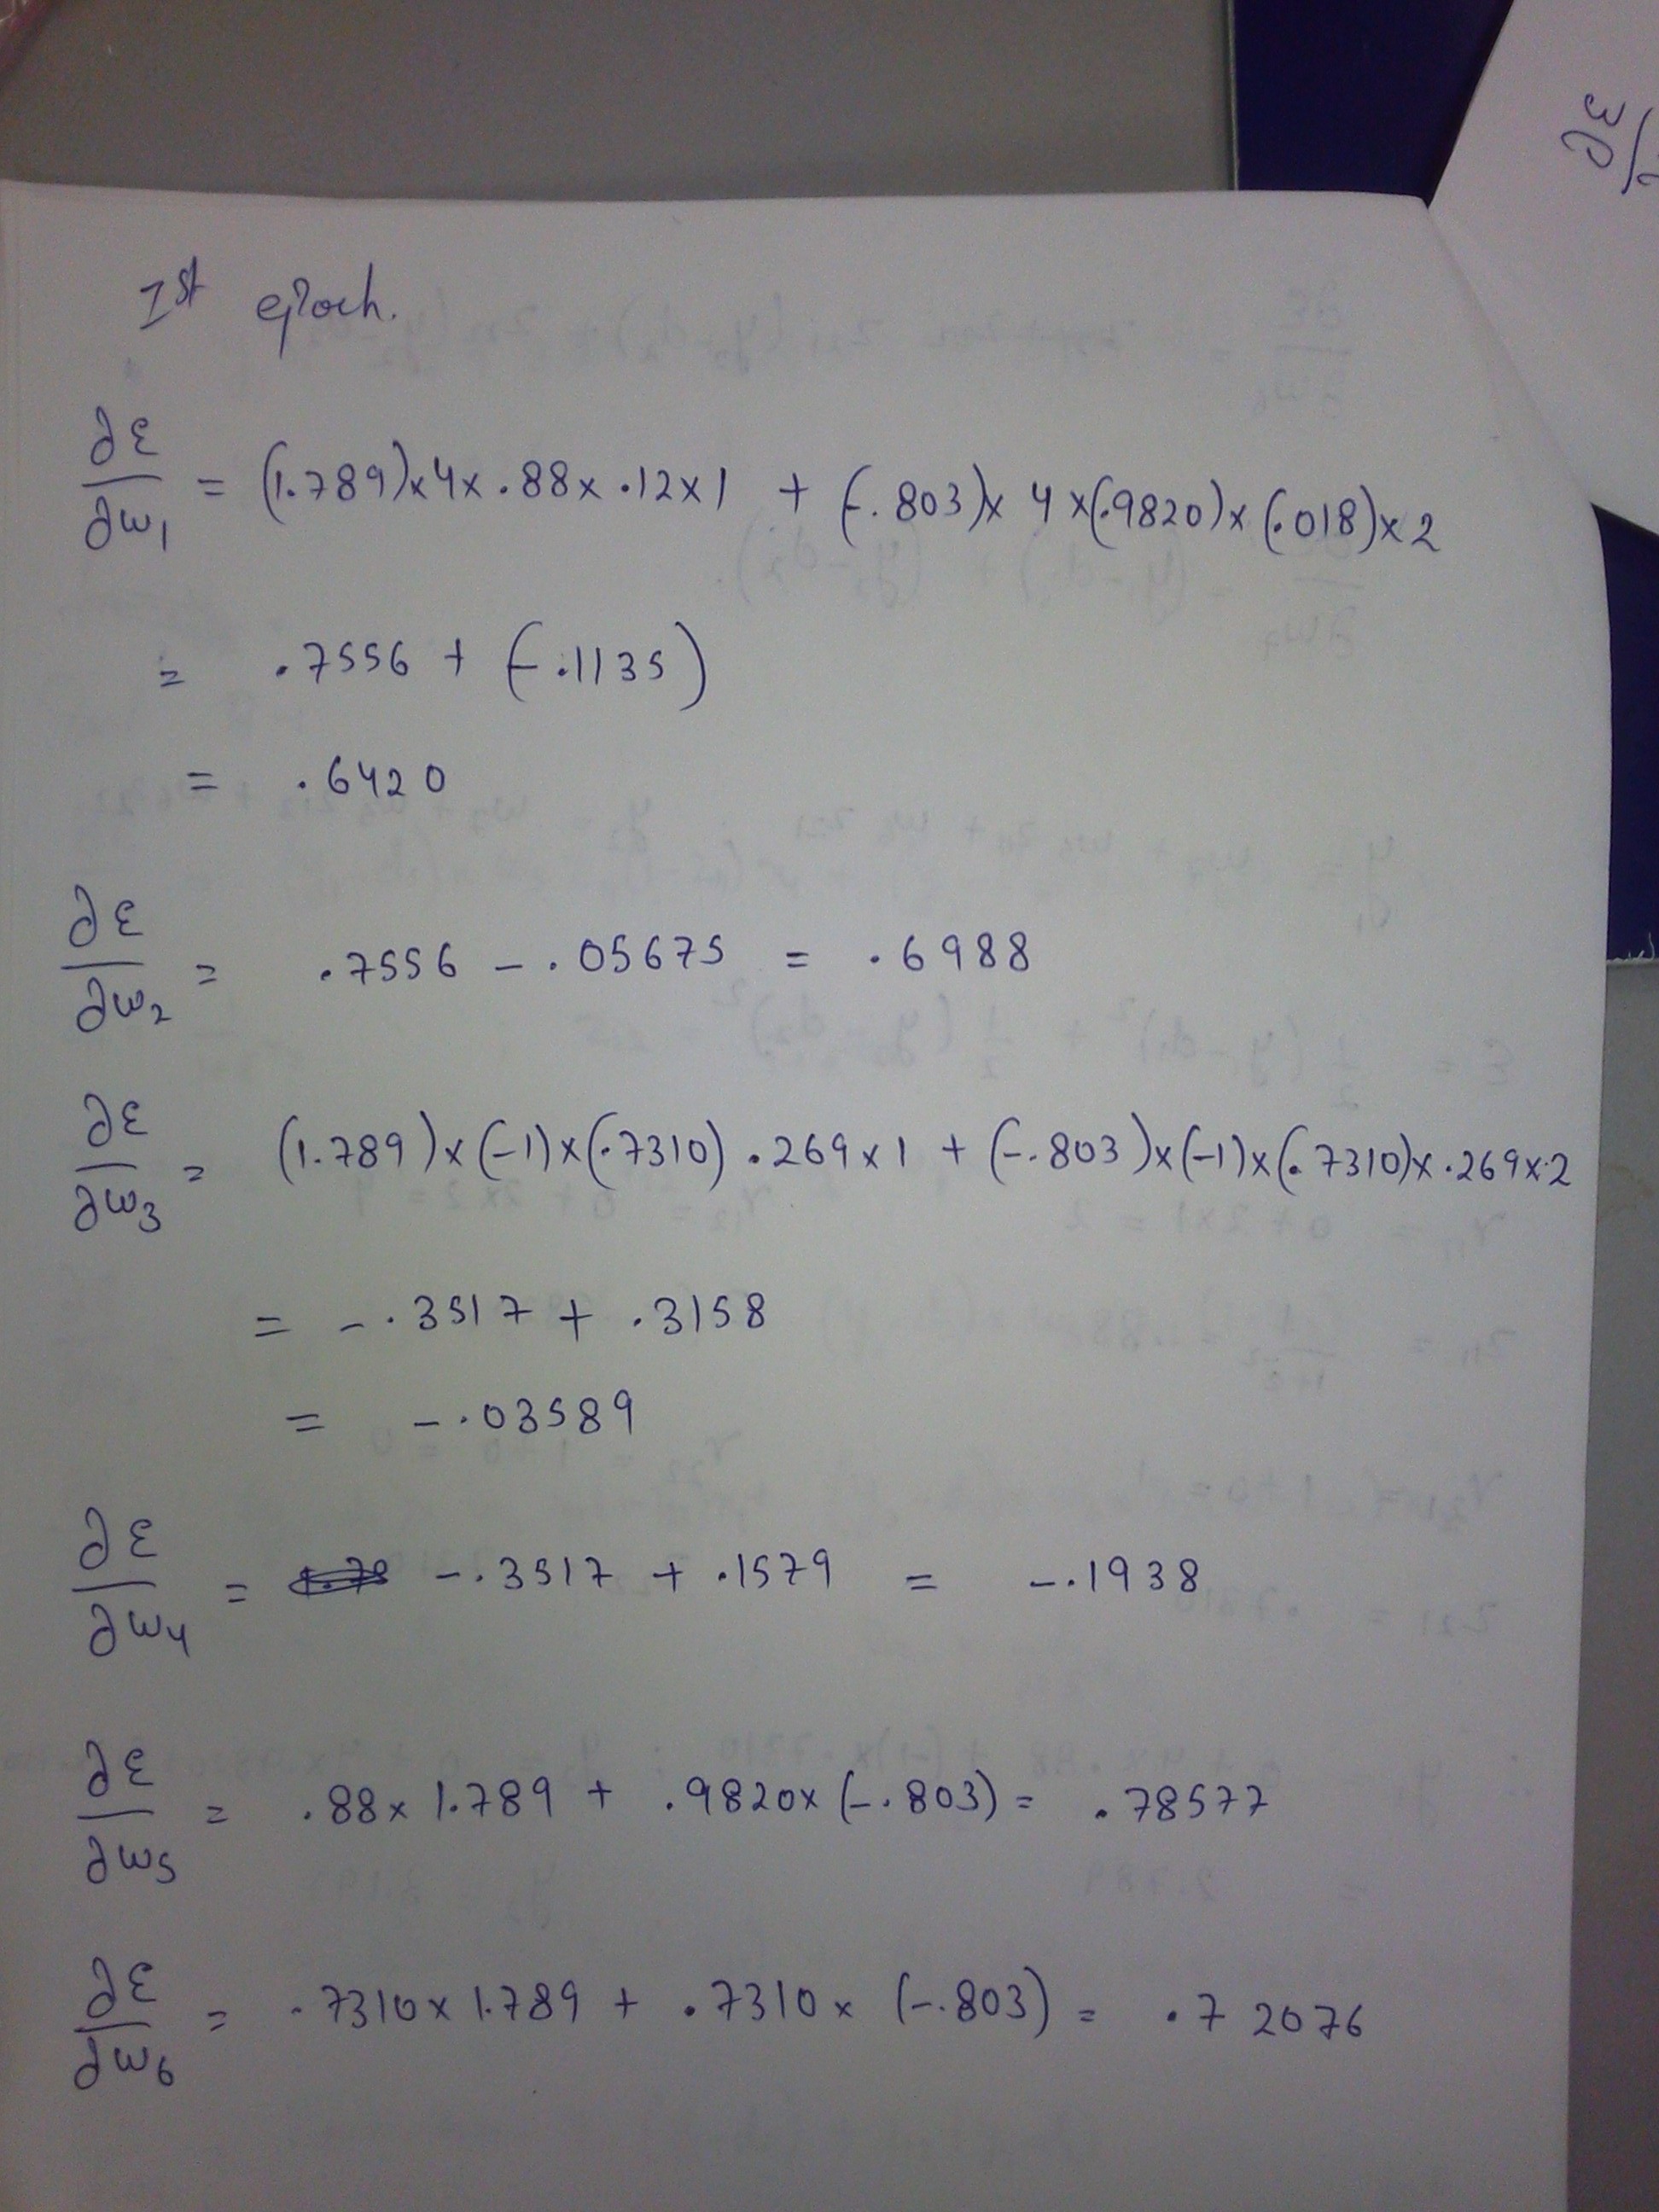 1st epoch.
∂ε/∂w₁ = (1.789)×4×.88×.12×1 + (-.803)× 4×(.9820)×(.018)×2
= .7556 + (-.1135)
= .6420
∂ε/∂w₂ = .7556 - .05675 = .6988
∂ε/∂w₃ = (1.789)×(-1)×(.7310) .269×1 + (-.803)×(-1)×(.7310)×.269×2
= -.3517 + .3158
= -.03589
∂ε/∂w₄ = -.3517 + .1579 = -.1938
∂ε/∂w₅ = .88× 1.789 + .9820×(-.803) = .78577
∂ε/∂w₆ = .7310×1.789 + .7310× (-.803) = .72076
∂ε